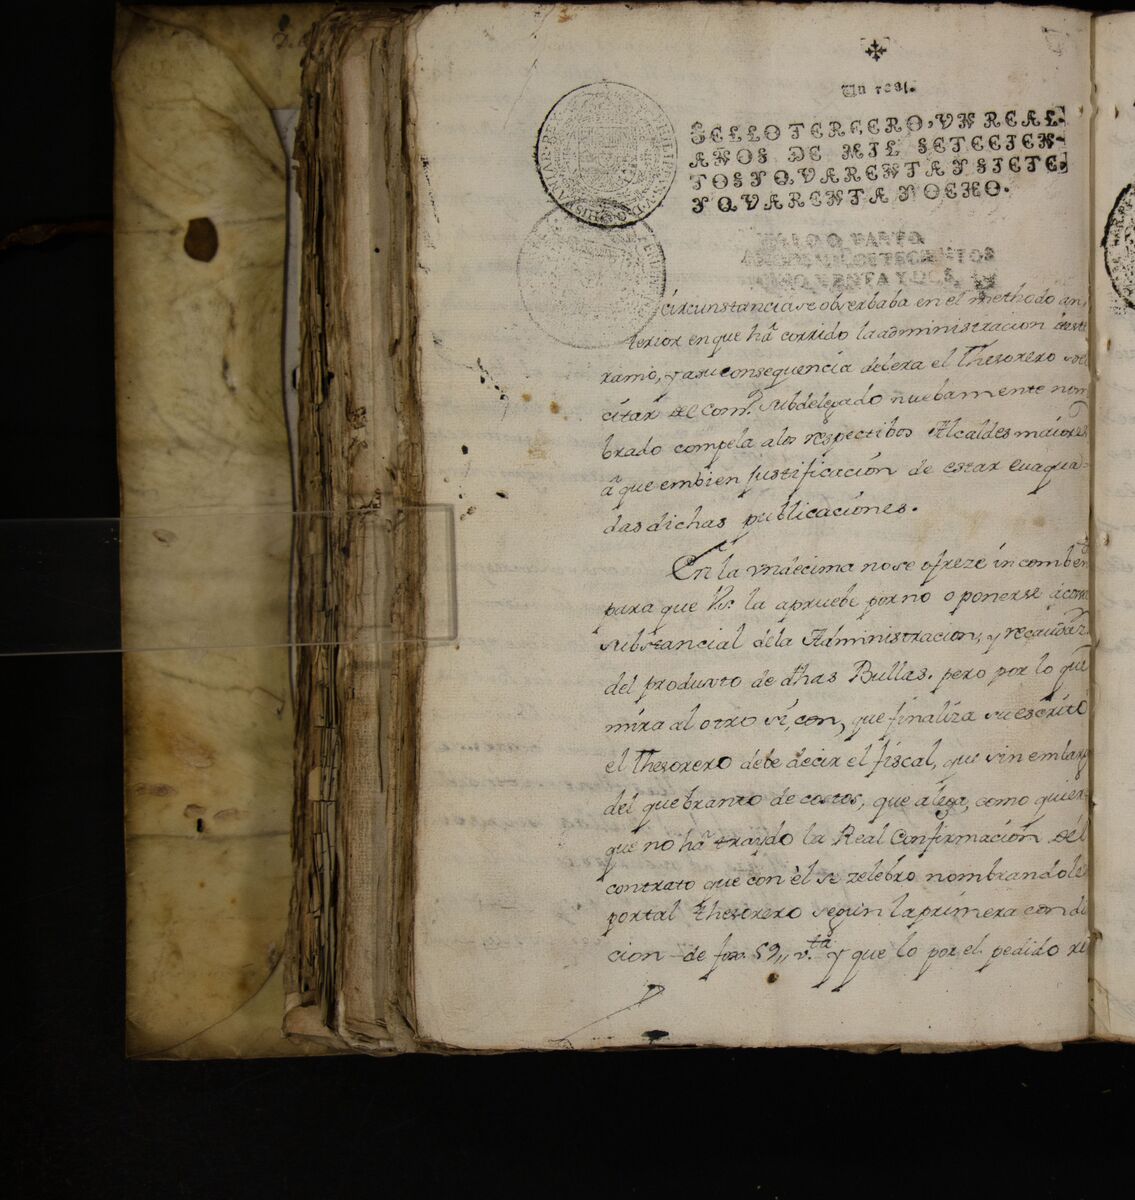 Un real.
SELLO TERCERO, VN REAL,
AÑOS DE MIL SETECIEN-
TOS Y QVARENTA Y SIETE,
Y QVARENTA Y OCHO.
circunstancia se observaba en el methodo an
terior en que hã corrido la administracion deste
ramo, y a su consequencia debera el Thesorero soli
citar del Com.º Subdelegado nuebamente nom
brado compela a los respectibos Alcaldes maiores
a que embien justificación de estar euaqua
das dichas publicaciónes.
En la vndecima no se ofreze incomben.te
para que la apruebe por no oponerse a cosa
substancial dela Administracion, y recaudaz.n
del produvto de dhas Bullas. pero por lo que
mira al otro si, con, que finaliza su escrito
el Thesorero debe decir el fiscal, que sin embarg
del quebranto de costos, que alega, como quier
que no hã traydo la Real Confirmación dél
contrato que con èl se zelebro nombrandole
por tal Thesorero segun la primera condi
cion de fox. 59,, v.ta y que lo por el pedido re